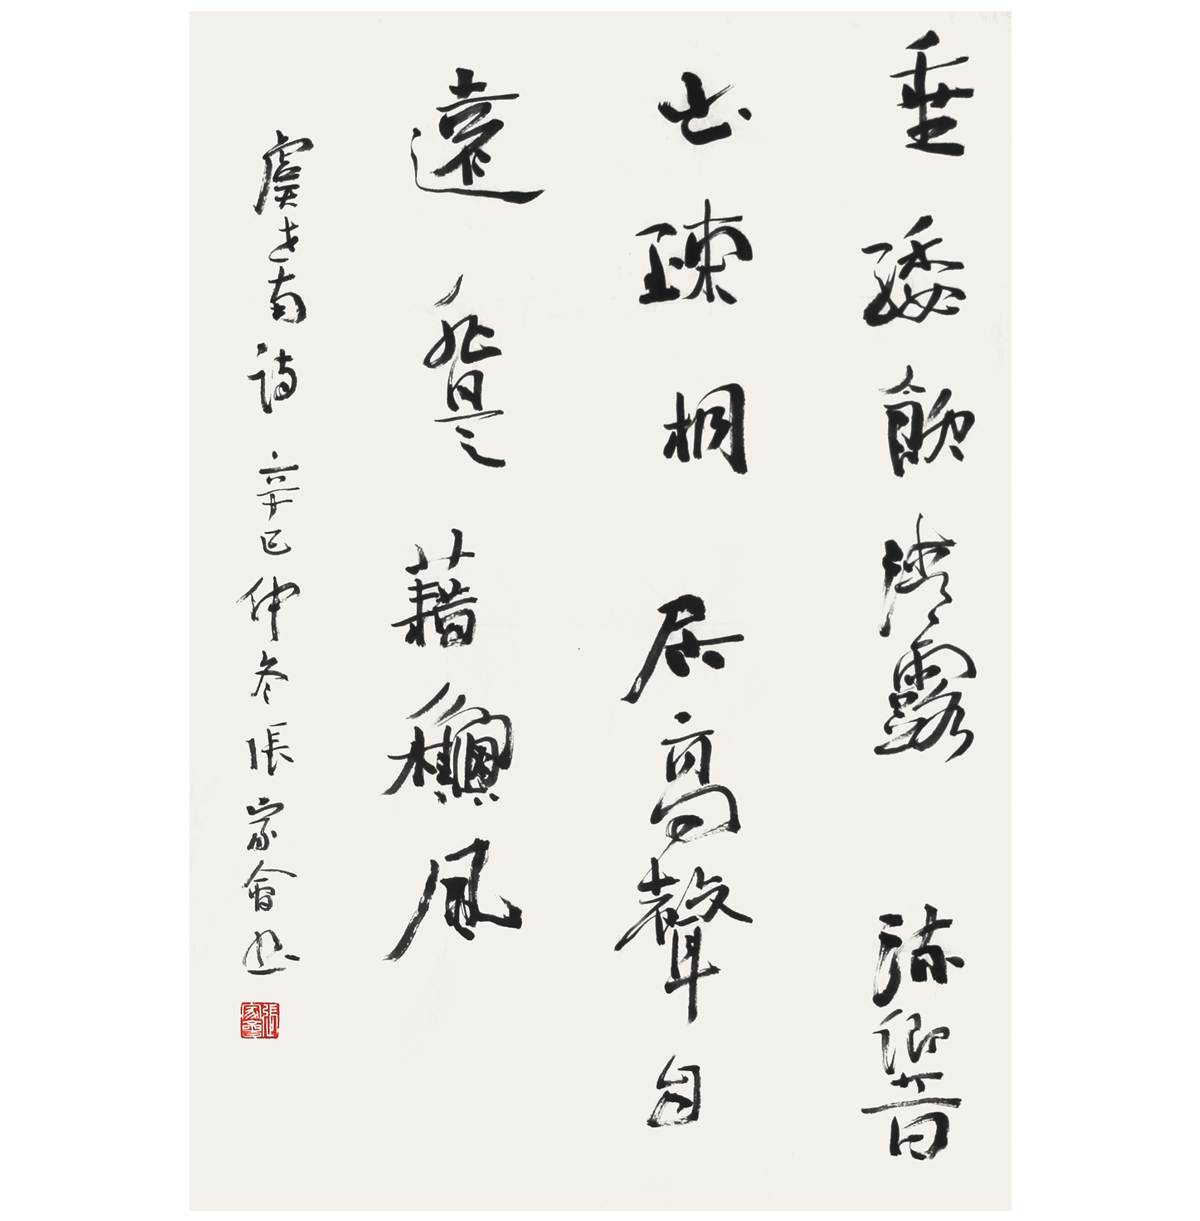 垂緌飲清露流響
出疎桐居高聲自
遠非是藉穐風
虞世南詩辛巳仲冬張家會書
張家會